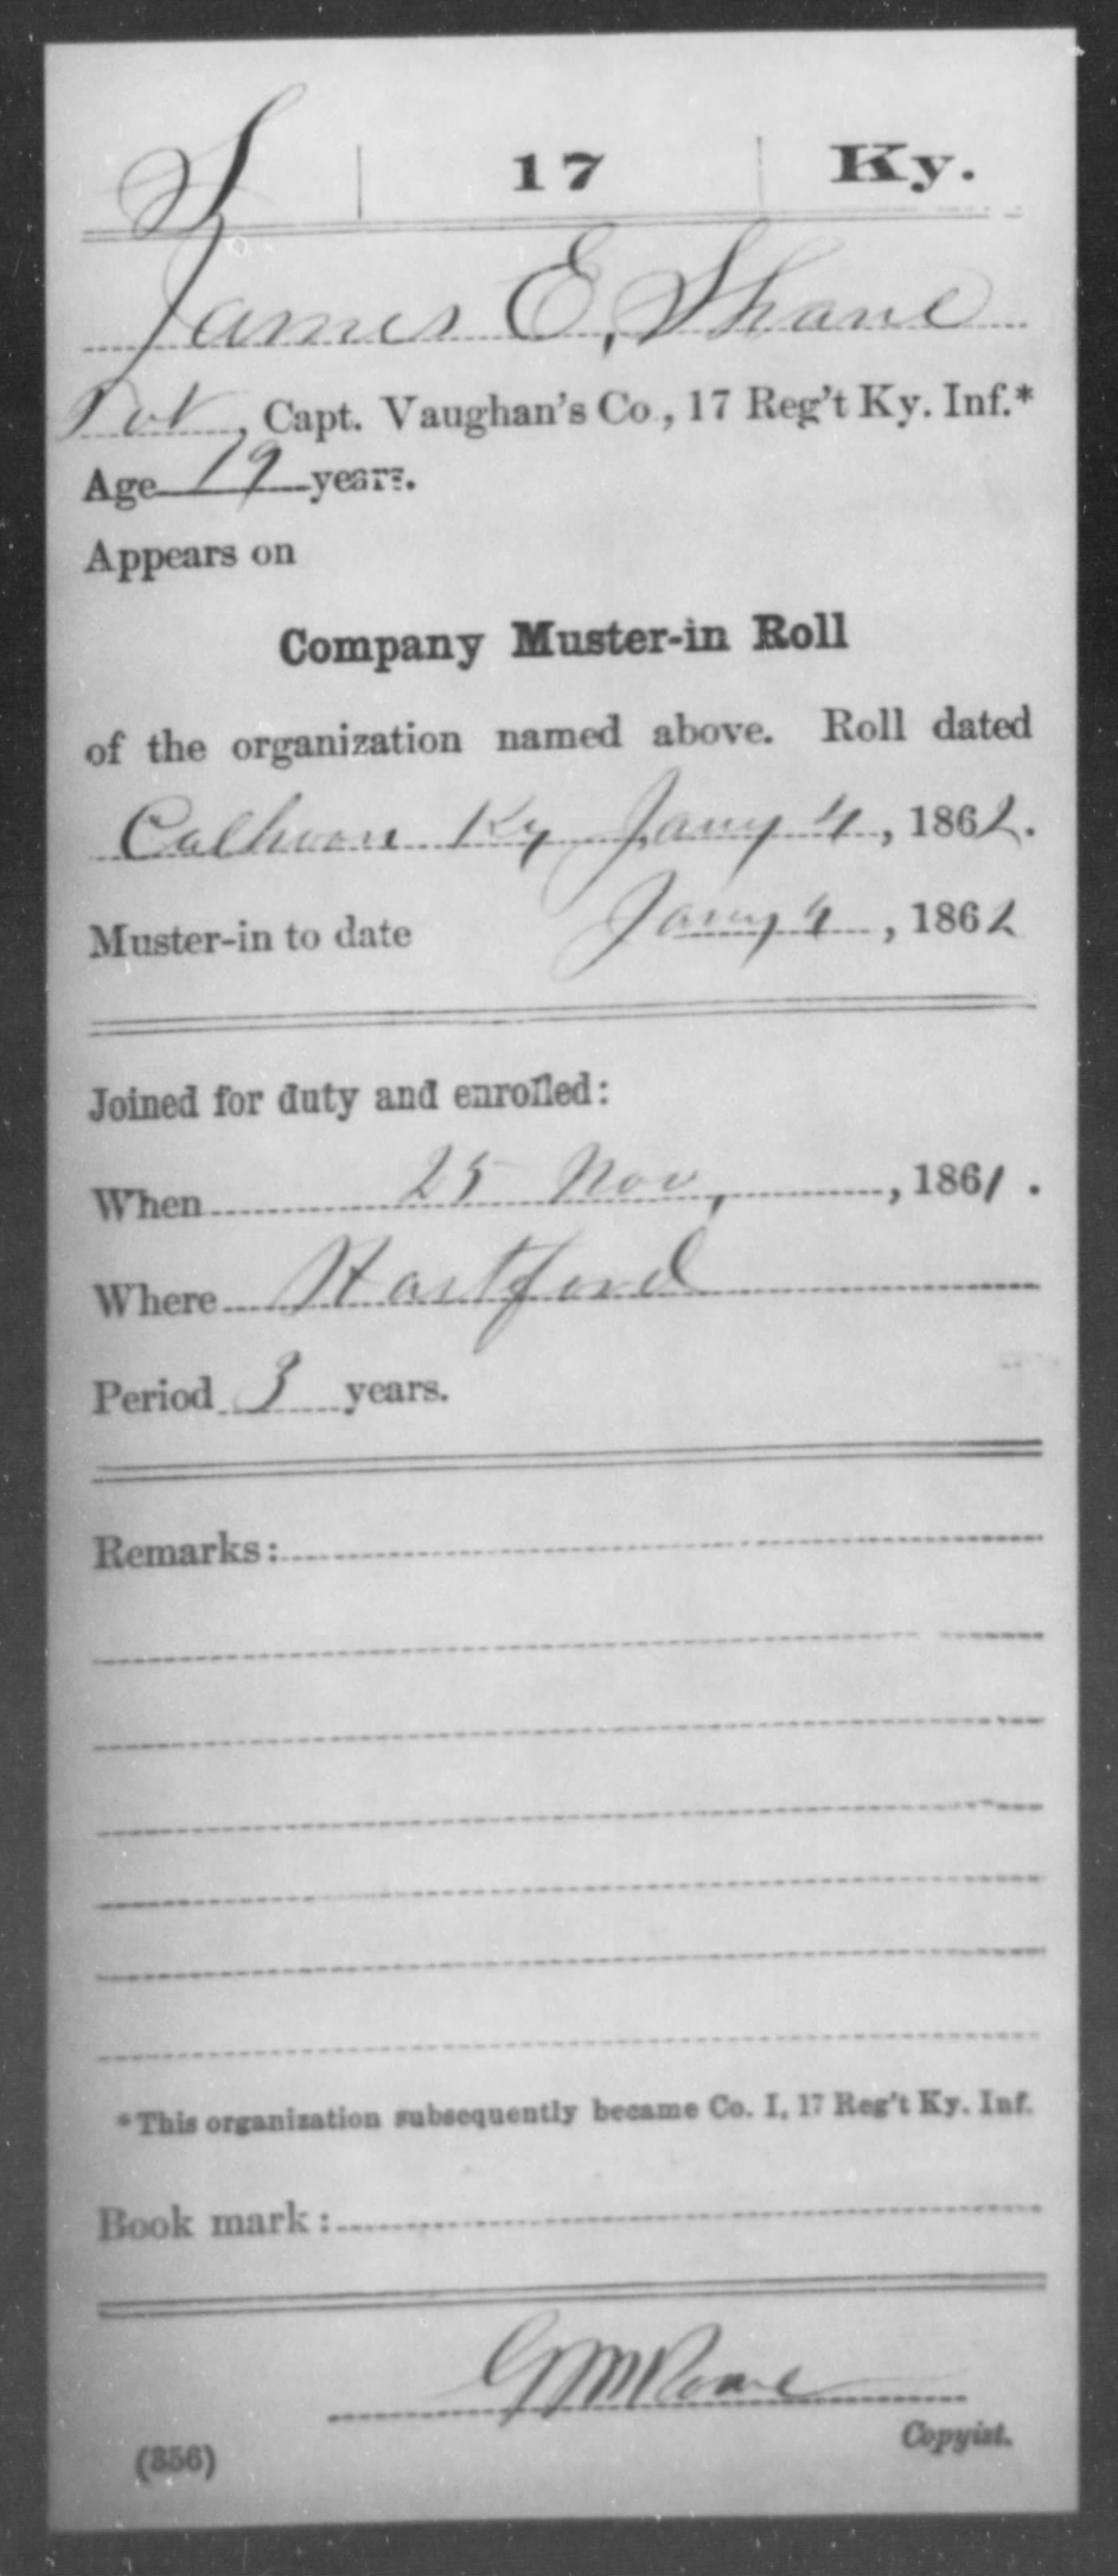 S | 17 | Ky.
James E, Shane
Pvt, Capt. Vaughan's Co., 17 Reg't Ky. Inf.*
Age 19 years.
Appears on
Company Muster-in Roll
of the organization named above. Roll dated
Calhoon Ky Jany 4, 1862.
Muster-in to date Jany 4, 1862
Joined for duty and enrolled:
When 25 Nov, , 1861.
Where Hartford
Period 3 years.
Remarks:
*This organization subsequently became Co. I, 17 Reg't Ky. Inf.
Book mark:
Copyist.
(356)